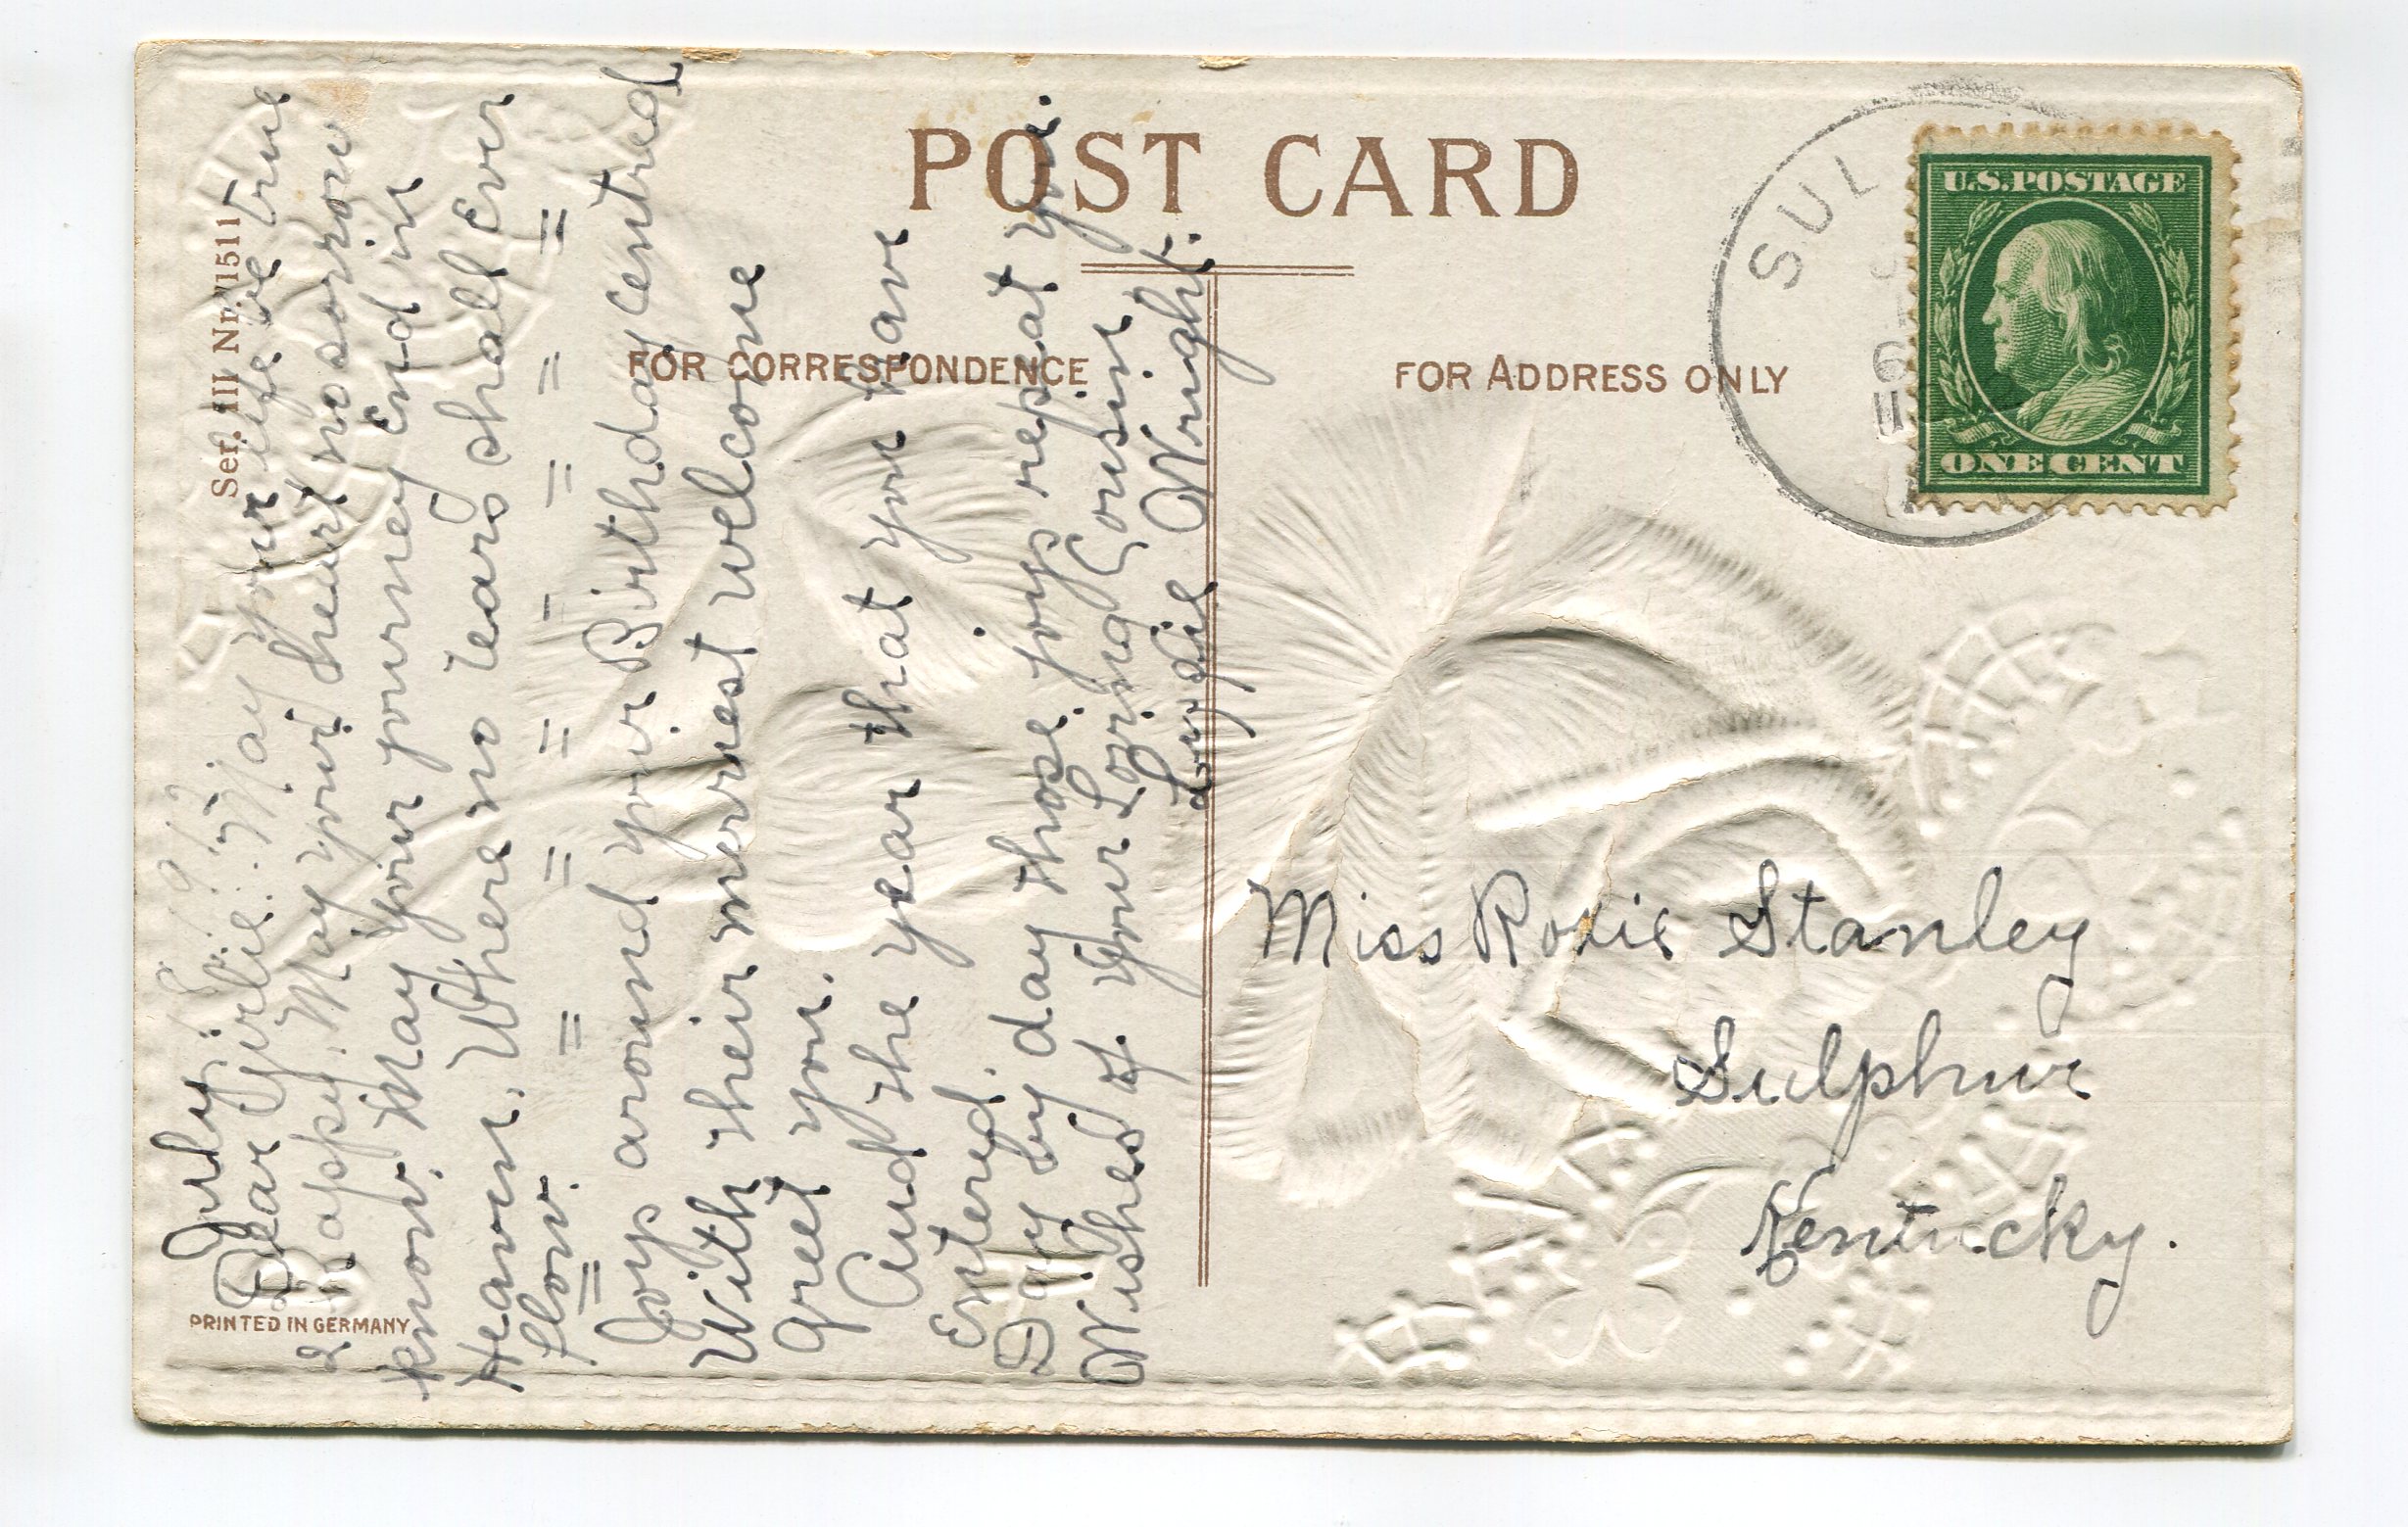 POST CARD
FOR CORRESPONDENCE
FOR ADDRESS ONLY
Ser. III Nr. 1511
PRINTED IN GERMANY
U.S. POSTAGE
ONE CENT
SUL
July
Dear Girlie: May your life be true
& happy. May your heart no sorrow
know. May your journey End in
Heaven. Where no tears shall Ever
flow.
= = = = = = = =
Joys around your Birthday centred
With their merriest welcome
greet you.
And the year that you have
Entered.
Day by day those joys repeat you.
Wishes of your Loving Cousin
Wright.
Miss Roxie Stanley
Sulphur
Kentucky.